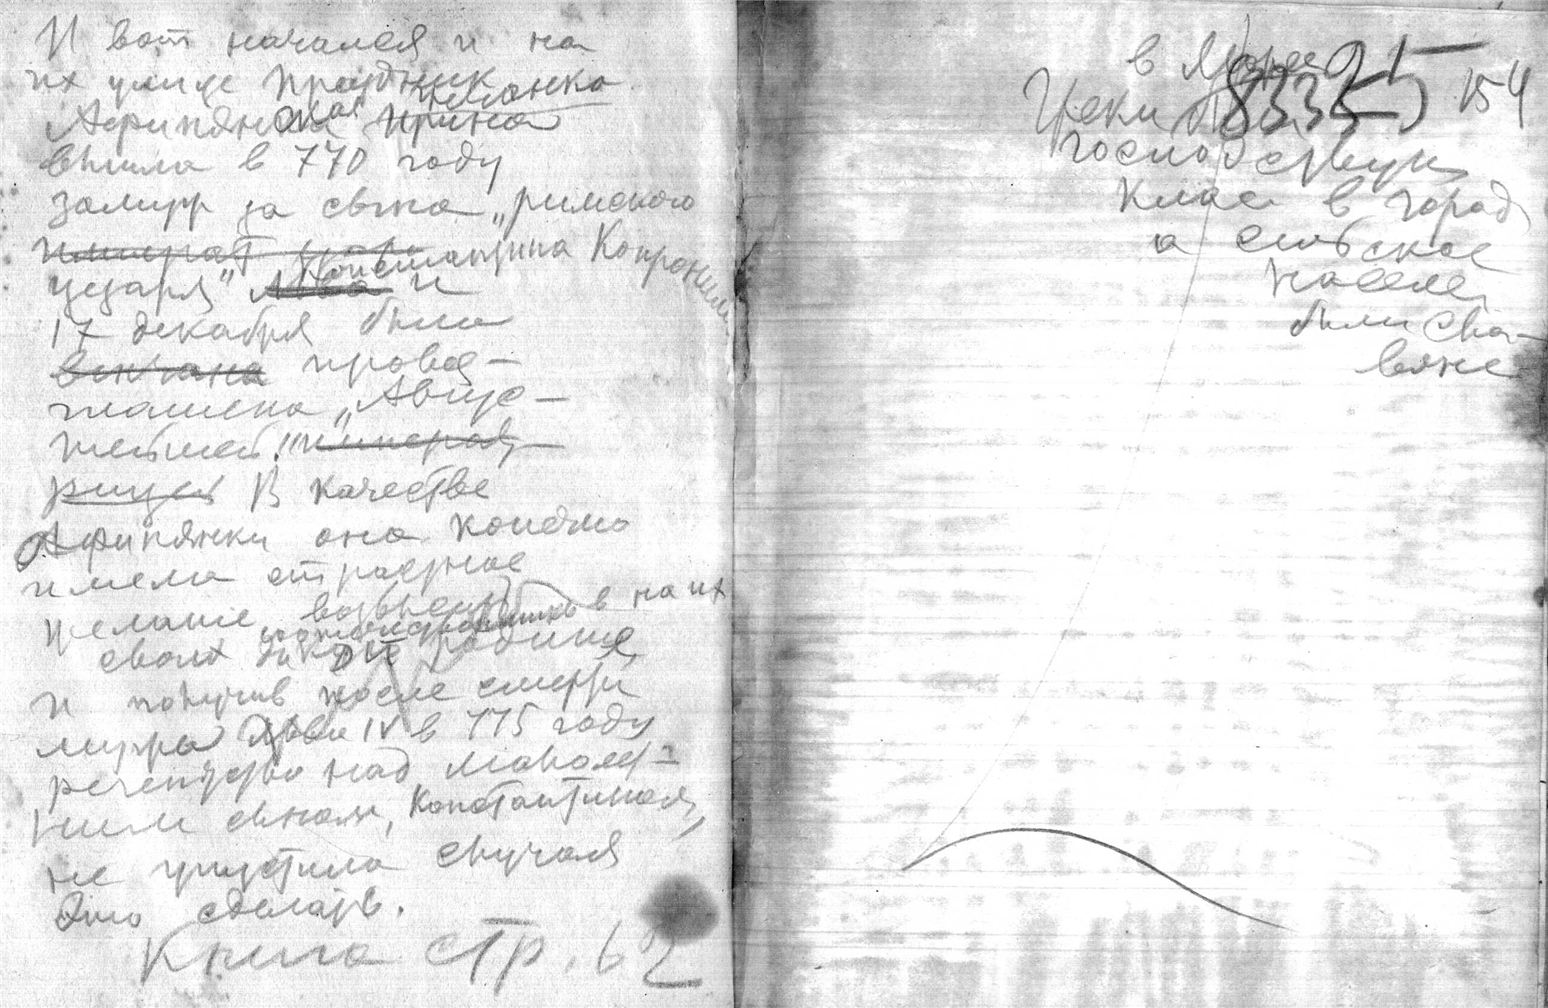 И вот начался и на
их улице праздник
Афинянка Ирина
вышла в 770 году
замуж за сына „римского
императ царя Константина Копронима
цезаря" Льва и
17 декабря была
венчана провоз-
глашена „Август-
тейшей" императ-
рицей В качестве
Афинянки она конечно
имела страстное
желание возвысить
своих на их родине
и получив после смерти
мужа Льва IV в 775 году
регентство над малолет-
ним сыном, Константином,
не упустила случая
это сделать.
Книга стр. 62
в
Греки 154
господствующ
класс в город
а сельское
населен
были сла-
вяне